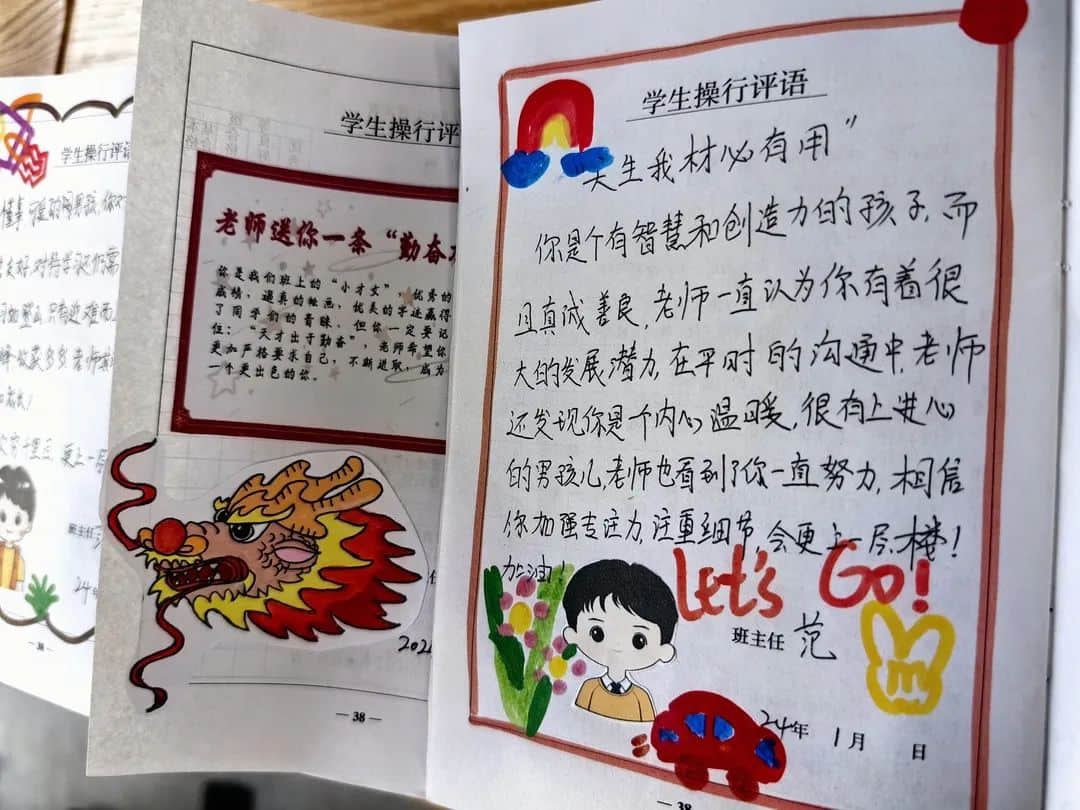 学生操行评语
"天生我材必有用"
你是个有智慧和创造力的孩子,而
且真诚善良,老师一直认为你有着很
大的发展潜力,在平时的沟通中,老师
还发现你是个内心温暖,很有上进心
的男孩儿,老师也看到了你一直努力,相信
你加强专注力,注重细节,会更上一层楼!
加油!
Let's Go!
班主任 范
24年 1月 日
— 38
学生操行评
老师送你一条“勤奋
你是我们班上的“小才女”,优秀的
成绩,逼真的绘画,优美的字迹赢得
了同学们的青睐,但你一定要记
住:“天才出于勤奋”,老师希望你
更加严格要求自己,不断进取,成为
一个更出色的你。
202
— 38 —
学生操行评语
班主任
24年
— 38 —